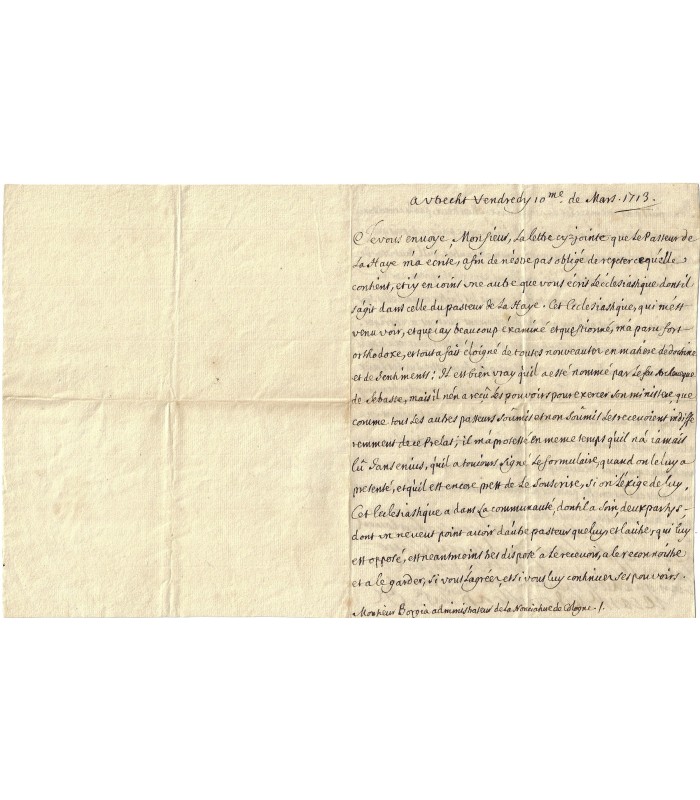 a Utrecht Vendredy 10.me de Mars. 1713.
Je vous envoye, Monsieur, La lettre cy-jointe que Le Pasteur de
La Haye m'a écrite, afin de n'éstre pas obligé de repeter ce qu'elle
contient, et i'y en ioins une autre que vous écrit L'ecclesiastique dont il
s'agit dans celle du pasteur de La Haye. Cet Ecclesiastique, qui m'est
venu voir, et que i'ay beaucoup éxaminé et questionné, m'a paru fort
orthodoxe, et tout a fait éloigné de toutes nouveautez en matiere de doctrine
et de Sentiments: Il est bien vray qu'il a esté nommé par Le feu Archeveque
de Sebaste, mais il n'en a reçû Les pouvoirs pour exercer Son ministere que
comme tous Les autres pasteurs Soûmis et non Soûmis Les recevoient indiffe
remment de ce Prelat; il m'a protesté en meme temps qu'il n'a iamais
lû Jansenius, qu'il a toujours Signé Le formulaire, quand on le luy a
presenté, et qu'il est encore prest de Le Souscrire, si on L'éxige de luy.
Cet Ecclesiastique a dans La communauté, dont il a Soin, deux partys-
dont un ne veut point avoir d'autre pasteur que luy, et L'autre, qui luy
est opposé, est neantmoins tres disposé a Le recevoir, a Le reconnoistre
et a le garder, si vous L'agréez, et si vous luy continuez ses pouvoirs.
Monsieur Borgia administrateur de La Nonciature de Cologne. /.